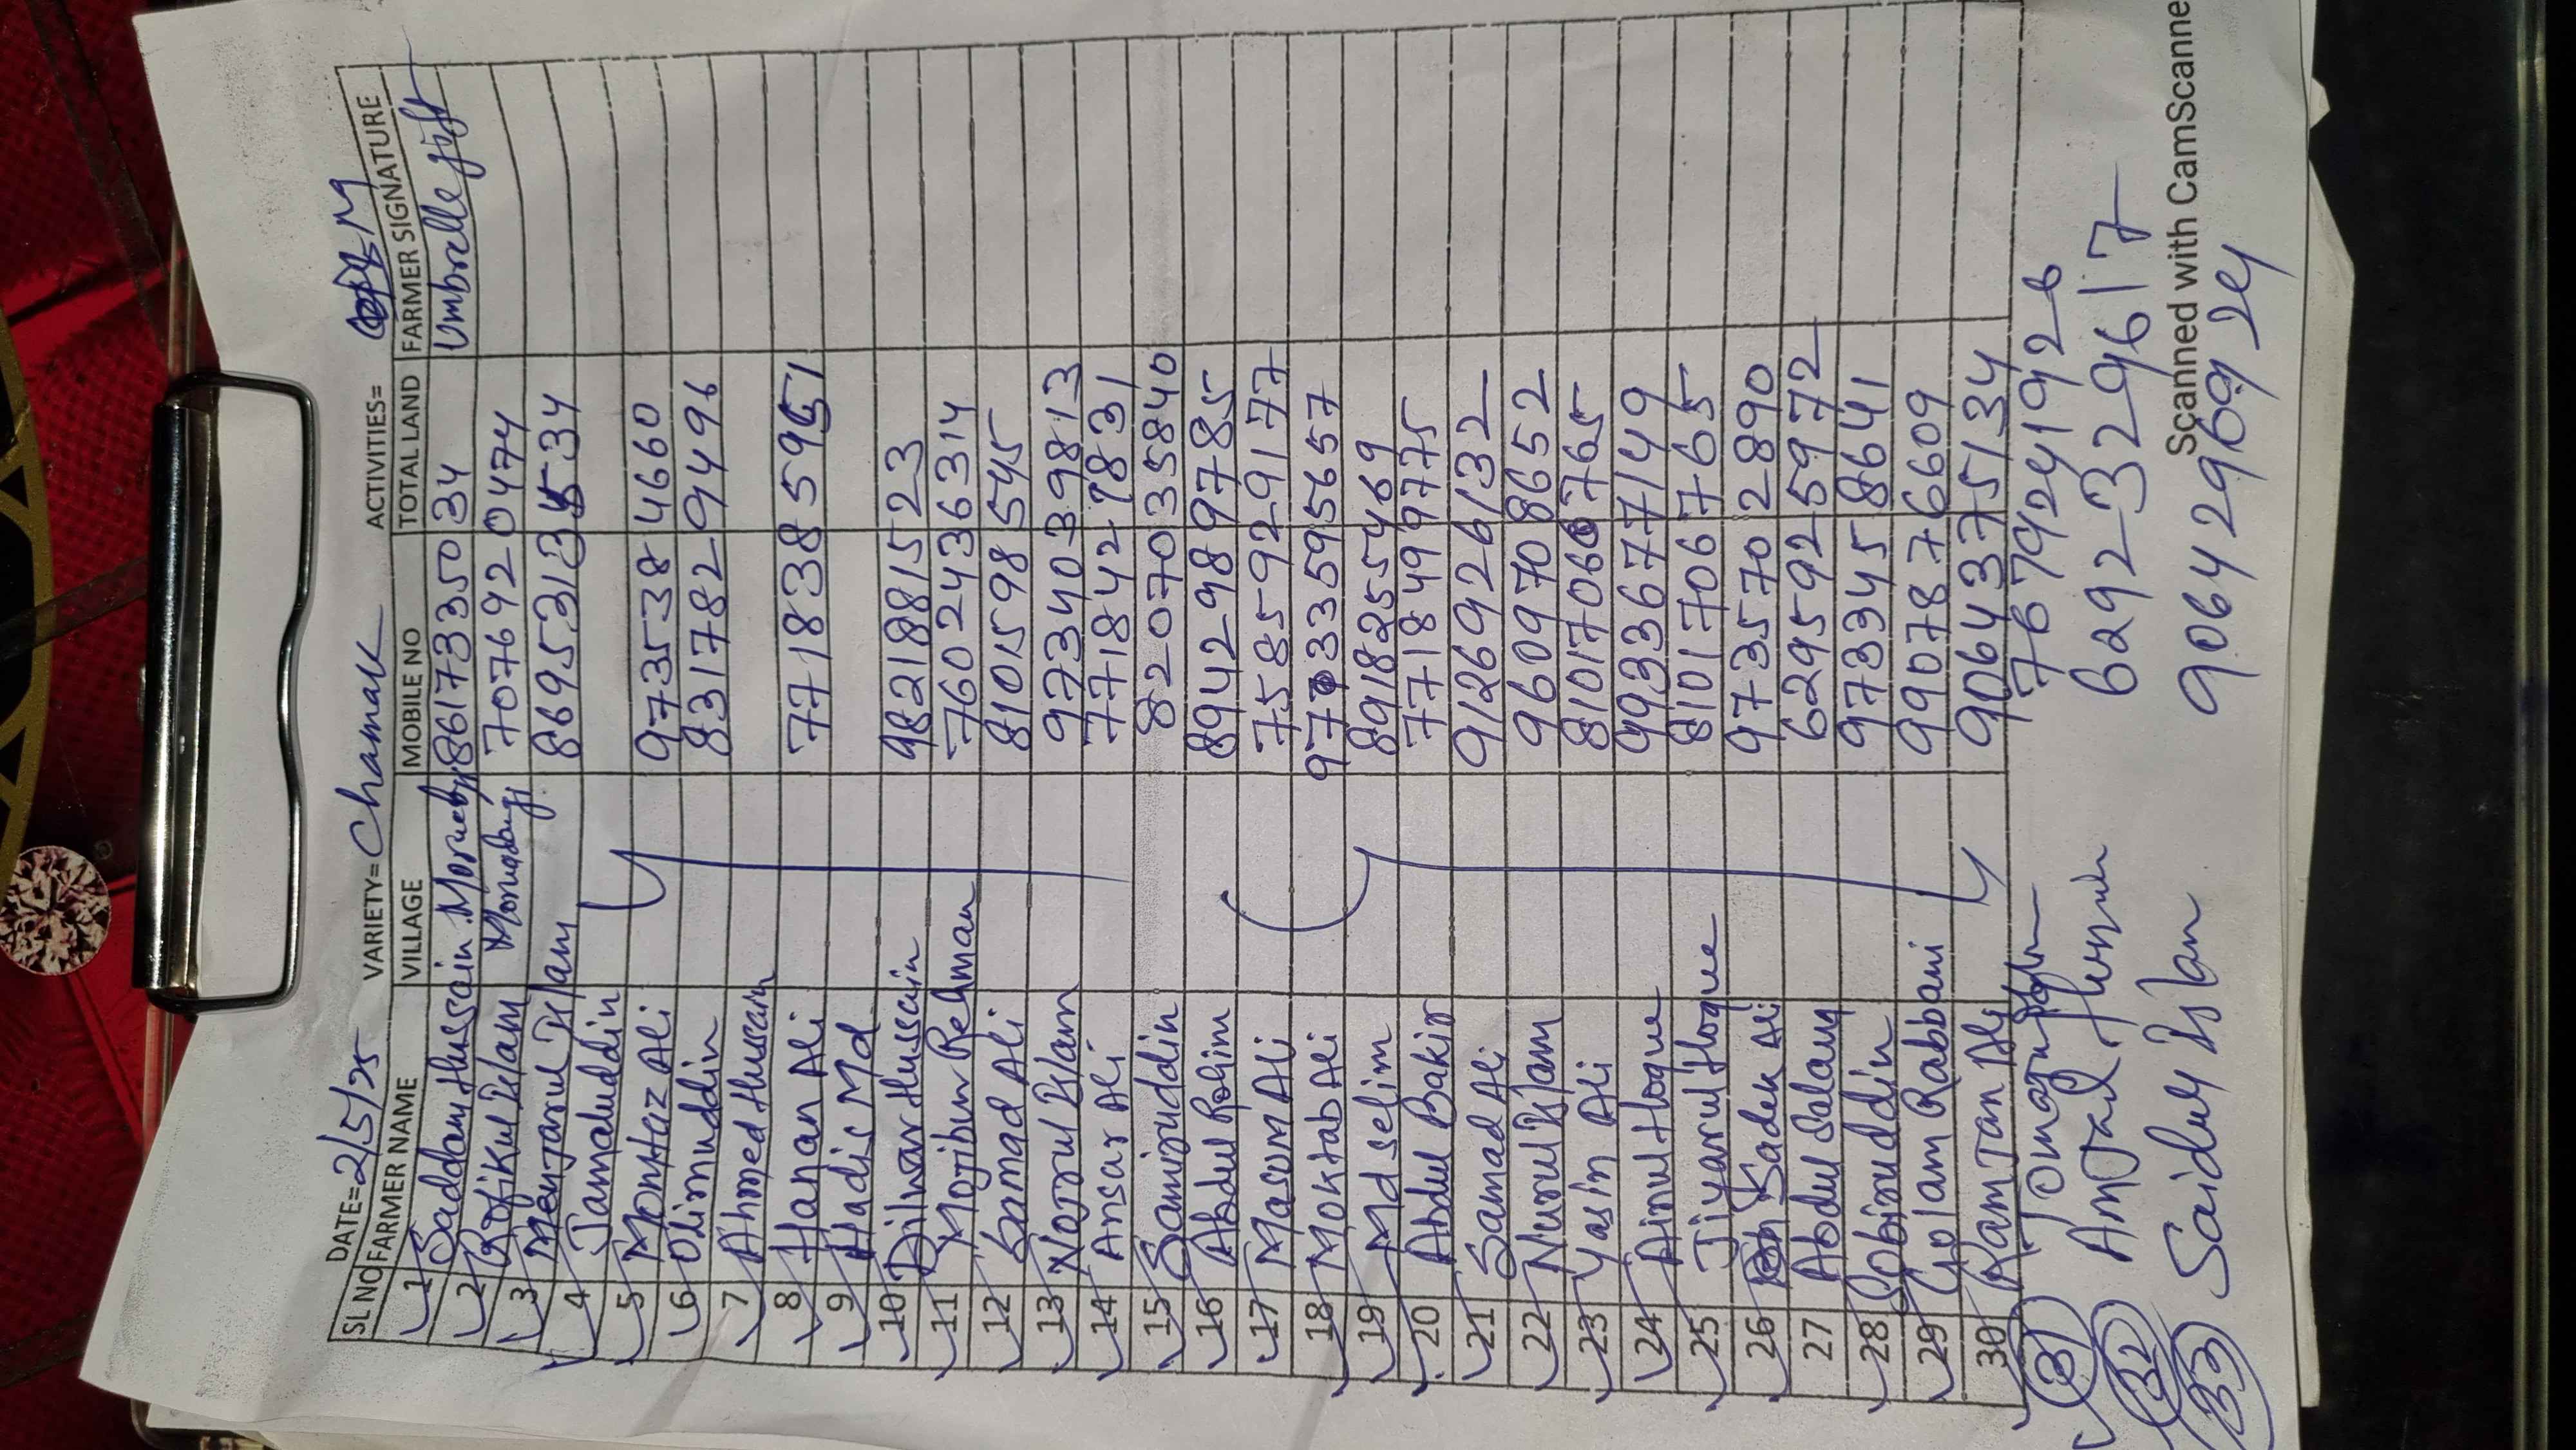 DATE=2/5/25 VARIETY=Chamak ACTIVITIES= M
SL NO FARMER NAME VILLAGE MOBILE NO TOTAL LAND FARMER SIGNATURE
1 Saddam Hussain 8617335034 Umbrella gift
2 Rofikul Islam 7076920474
3 Menjarul Islam
4 Jamaluddin
5 Montaz Ali 9735384660
6 Olimuddin 8317829496
7 Ahmed Hussain
8 Hanan Ali
9 Hadis Md
10 Dilwar Hussain 9821881523
11 Mojibur Rehman 7602436314
12 Samad Ali 8101598545
13 Nojrul Islam 9734039813
14 Ansar Ali 7718427831
15 Samiruddin 8207035840
16 Abdul Rohim 8942989785
17 Masum Ali 7585929177
18 Moktab Ali
19 Md selim 8918255469
20 Abdul Bakir 7718499775
21 Samad Ali 9126926132
22 Nurul Islam 9609708652
23 Yasin Ali
24 Ainul Hoque 9933677149
25 Jiyarul Hoque 8101706765
26 Sadek Ali 9735702890
27 Abdul Salam 6295925972
28 Sobiruddin 9733458641
29 Golam Rabbani 9907876609
30 Ramjan Ali 9064375134
31 7679241926
32 Amjad Hussain 6292329617
33 Saidul Islam 9064296924
Scanned with CamScanne